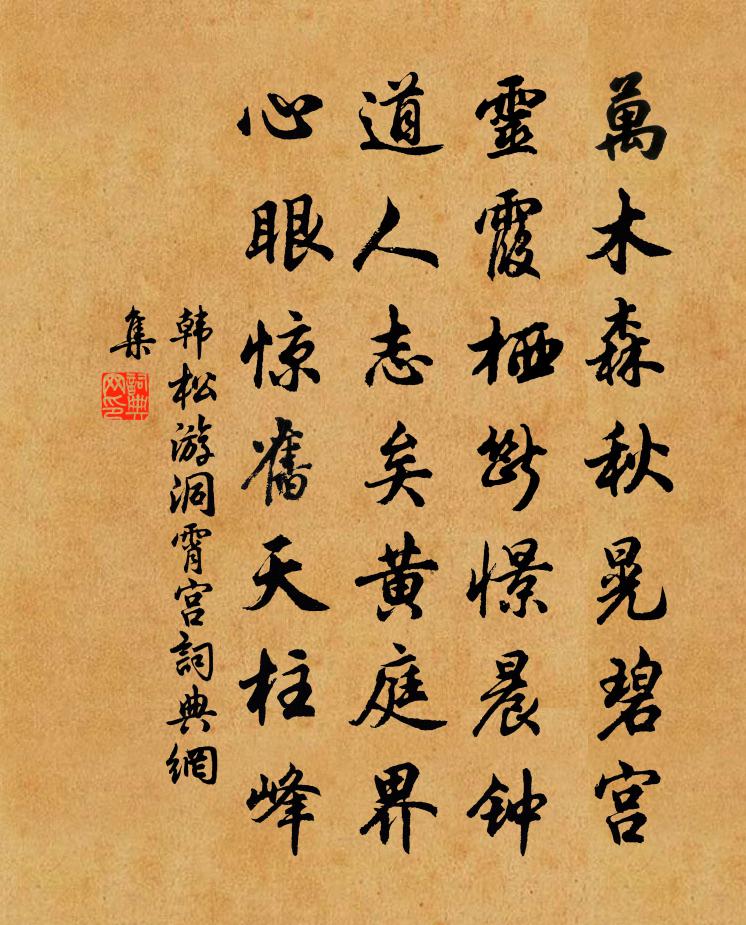 萬木森秋晃碧宫
靈霞栖斷憬晨钟
道人志矣黄庭界
心眼惊舊天柱峰
韩松游洞霄宫詞典網
集
詞典
网印